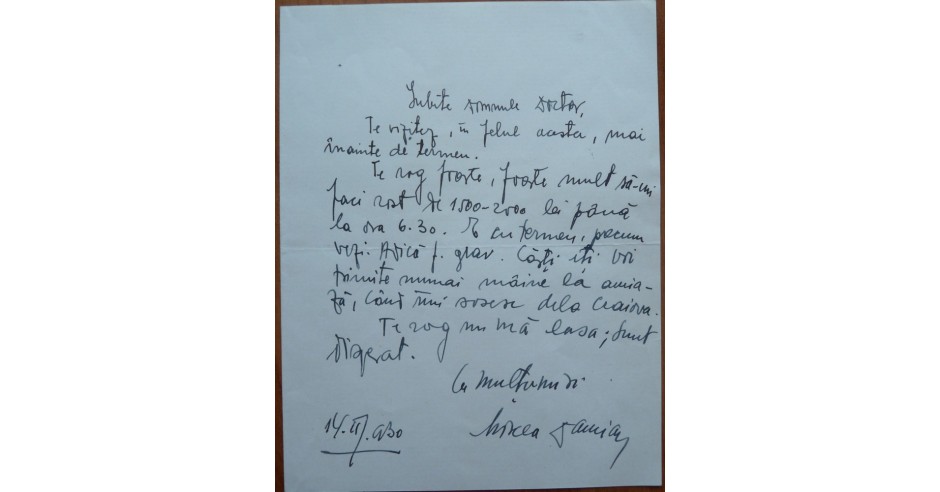 Iubite domnule doctor,
Te vizitez, în felul acesta, mai
înainte de termen.
Te rog foarte, foarte mult să-mi
faci rost de 1500-2000 lei până
la ora 6.30. E cu termen, precum
vezi. Adică f. grav. Cărți îți voi
trimite numai mâine la amia-
ză, când îmi sosesc dela Craiova.
Te rog nu mă lasa; sunt
disperat.
Cu mulțumiri
Mircea Damian
14.II.930